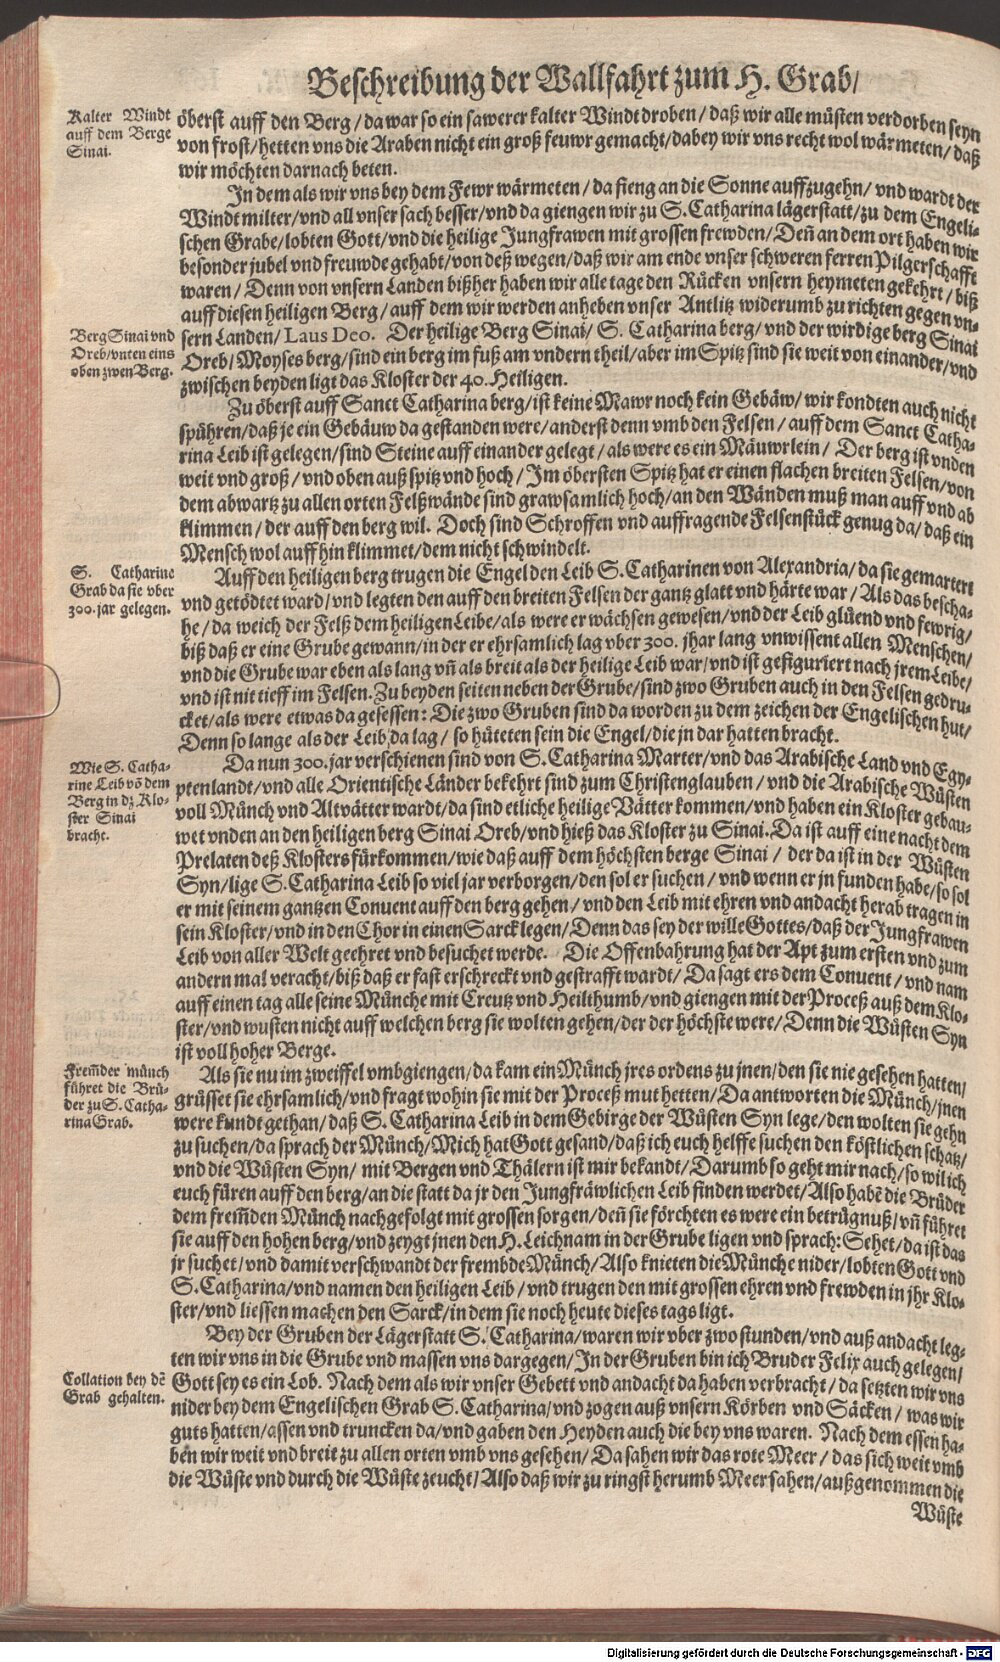 Beschreibung der Wallfahrt zum H. Grab/
Kalter Windt
auff dem Berge
Sinai.
öberst auff den Berg/ da war so ein sawerer kalter Windt droben/ daß wir alle müsten verdorben seyn
von frost/ hetten vns die Araben nicht ein groß feuwr gemacht/ dabey wir vns recht wol wärmeten/ daß
wir möchten darnach beten.
In dem als wir vns bey dem Fewr wärmeten/ da fieng an die Sonne auffzugehn/ vnd wardt der
Windt milter/ vnd all vnser sach besser/ vnd da giengen wir zu S. Catharina lägerstatt/ zu dem Engeli-
schen Grabe/ lobten Gott/ vnd die heilige Jungfrawen mit grossen frewden/ Den̄ an dem ort haben wir
besonder jubel vnd freuwde gehabt/ von deß wegen/ daß wir am ende vnser schweren ferren Pilgerschafft
waren/ Denn von vnsern Landen bißher haben wir alle tage den Rücken vnsern heymeten gekehrt/ biß
auff diesen heiligen Berg/ auff dem wir werden anheben vnser Antlitz widerumb zu richten gegen vn-
Berg Sinai vnd
Oreb/ vnten eins
oben zwen Berg.
sern Landen/ Laus Deo. Der heilige Berg Sinai/ S. Catharina berg/ vnd der wirdige berg Sinai
Oreb/ Moyses berg/ sind ein berg im fuß am vndern theil/ aber im Spitz sind sie weit von einander/ vnd
zwischen beyden ligt das Kloster der 40. Heiligen.
Zu öberst auff Sanct Catharina berg/ ist keine Mawr noch kein Gebäw/ wir kondten auch nicht
spühren/ daß je ein Gebäuw da gestanden were/ anderst denn vmb den Felsen/ auff dem Sanct Catha-
rina Leib ist gelegen/ sind Steine auff einander gelegt/ als were es ein Mäuwrlein/ Der berg ist vnden
weit vnd groß/ vnd oben auß spitz vnd hoch/ Im öbersten Spitz hat er einen flachen breiten Felsen/ von
dem abwartz zu allen orten Felßwände sind grawsamlich hoch/ an den Wänden muß man auff vnd ab
klimmen/ der auff den berg wil. Doch sind Schroffen vnd auffragende Felsenstück genug da/ daß ein
Mensch wol auffhin klimmet/ dem nicht schwindelt.
S. Catharine
Grab da sie vber
300. jar gelegen.
Auff den heiligen berg trugen die Engel den Leib S. Catharinen von Alexandria/ da sie gemartert
vnd getödtet ward/ vnd legten den auff den breiten Felsen der gantz glatt vnd härte war/ Als das bescha-
he/ da weich der Felß dem heiligen Leibe/ als were er wächsen gewesen/ vnd der Leib glüend vnd fewrig/
biß daß er eine Grube gewann/ in der er ehrsamlich lag vber 300. jhar lang vnwissent allen Menschen/
vnd die Grube war eben als lang vn̄ als breit als der heilige Leib war/ vnd ist gefiguriert nach jrem Leibe/
vnd ist nit tieff im Felsen. Zu beyden seiten neben der Grube/ sind zwo Gruben auch in den Felsen gedru-
cket/ als were etwas da gesessen: Die zwo Gruben sind da worden zu dem zeichen der Engelischen hut/
Denn so lange als der Leib da lag/ so hüteten sein die Engel/ die jn dar hatten bracht.
Wie S. Catha-
rine Leib vō dem
Berg in dz Klo-
ster Sinai
bracht.
Da nun 300. jar verschienen sind von S. Catharina Marter/ vnd das Arabische Land vnd Egy-
ptenlandt/ vnd alle Orientische Länder bekehrt sind zum Christenglauben/ vnd die Arabische Wüsten
voll Münch vnd Altvätter wardt/ da sind etliche heilige Vätter kommen/ vnd haben ein Kloster gebau-
wet vnden an den heiligen berg Sinai Oreb/ vnd hieß das Kloster zu Sinai. Da ist auff eine nacht dem
Prelaten deß Klosters fürkommen/ wie daß auff dem höchsten berge Sinai/ der da ist in der Wüsten
Syn/ lige S. Catharina Leib so viel jar verborgen/ den sol er suchen/ vnd wenn er jn funden habe/ so sol
er mit seinem gantzen Convent auff den berg gehen/ vnd den Leib mit ehren vnd andacht herab tragen in
sein Kloster/ vnd in den Chor in einen Sarck legen/ Denn das sey der wille Gottes/ daß der Jungfrawen
Leib von aller Welt geehret vnd besuchet werde. Die Offenbahrung hat der Apt zum ersten vnd zum
andern mal veracht/ biß daß er fast erschreckt vnd gestrafft wardt/ Da sagt ers dem Convent/ vnd nam
auff einen tag alle seine Münche mit Creutz vnd Heilthumb/ vnd giengen mit der Proceß auß dem Klo-
ster/ vnd wusten nicht auff welchen berg sie wolten gehen/ der der höchste were/ Denn die Wüsten Syn
ist voll hoher Berge.
Frem̄der münch
führet die Brü-
der zu S. Catha-
rina Grab.
Als sie nu im zweiffel vmbgiengen/ da kam ein Münch jres ordens zu jnen/ den sie nie gesehen hatten/
grüsset sie ehrsamlich/ vnd fragt wohin sie mit der Proceß mut hetten/ Da antworten die Münch/ jnen
were kundt gethan/ daß S. Catharina Leib in dem Gebirge der Wüsten Syn lege/ den wolten sie gehn
zu suchen/ da sprach der Münch/ Mich hat Gott gesand/ daß ich euch helffe suchen den köstlichen schatz/
vnd die Wüsten Syn/ mit Bergen vnd Thälern ist mir bekandt/ Darumb so geht mir nach/ so wil ich
euch füren auff den berg/ an die statt da jr den Jungfräwlichen Leib finden werdet/ Also habē die Brüder
dem frem̄den Münch nachgefolgt mit grossen sorgen/ den̄ sie förchten es were ein betrügnuß/ vn̄ führet
sie auff den hohen berg/ vnd zeygt jnen den H. Leichnam in der Grube ligen vnd sprach: Sehet/ da ist das
jr suchet/ vnd damit verschwandt der frembde Münch/ Also knieten die Münche nider/ lobten Gott vnd
S. Catharina/ vnd namen den heiligen Leib/ vnd trugen den mit grossen ehren vnd frewden in jhr Klo-
ster/ vnd liessen machen den Sarck/ in dem sie noch heute dieses tags ligt.
Bey der Gruben der Lägerstatt S. Catharina/ waren wir vber zwo stunden/ vnd auß andacht leg-
ten wir vns in die Grube vnd massen vns dargegen/ In der Gruben bin ich Bruder Felix auch gelegen/
Collation bey dē
Grab gehalten.
Gott sey es ein Lob. Nach dem als wir vnser Gebett vnd andacht da haben verbracht/ da setzten wir vns
nider bey dem Engelischen Grab S. Catharina/ vnd zogen auß vnsern Körben vnd Säcken/ was wir
guts hatten/ assen vnd truncken da/ vnd gaben den Heyden auch die bey vns waren. Nach dem essen ha-
ben wir weit vnd breit zu allen orten vmb vns gesehen/ Da sahen wir das rote Meer/ das sich weit vmb
die Wüste vnd durch die Wüste zeucht/ Also daß wir zu ringst herumb Meer sahen/ außgenommen die
Wüste
Digitalisierung gefördert durch die Deutsche Forschungsgemeinschaft - DFG